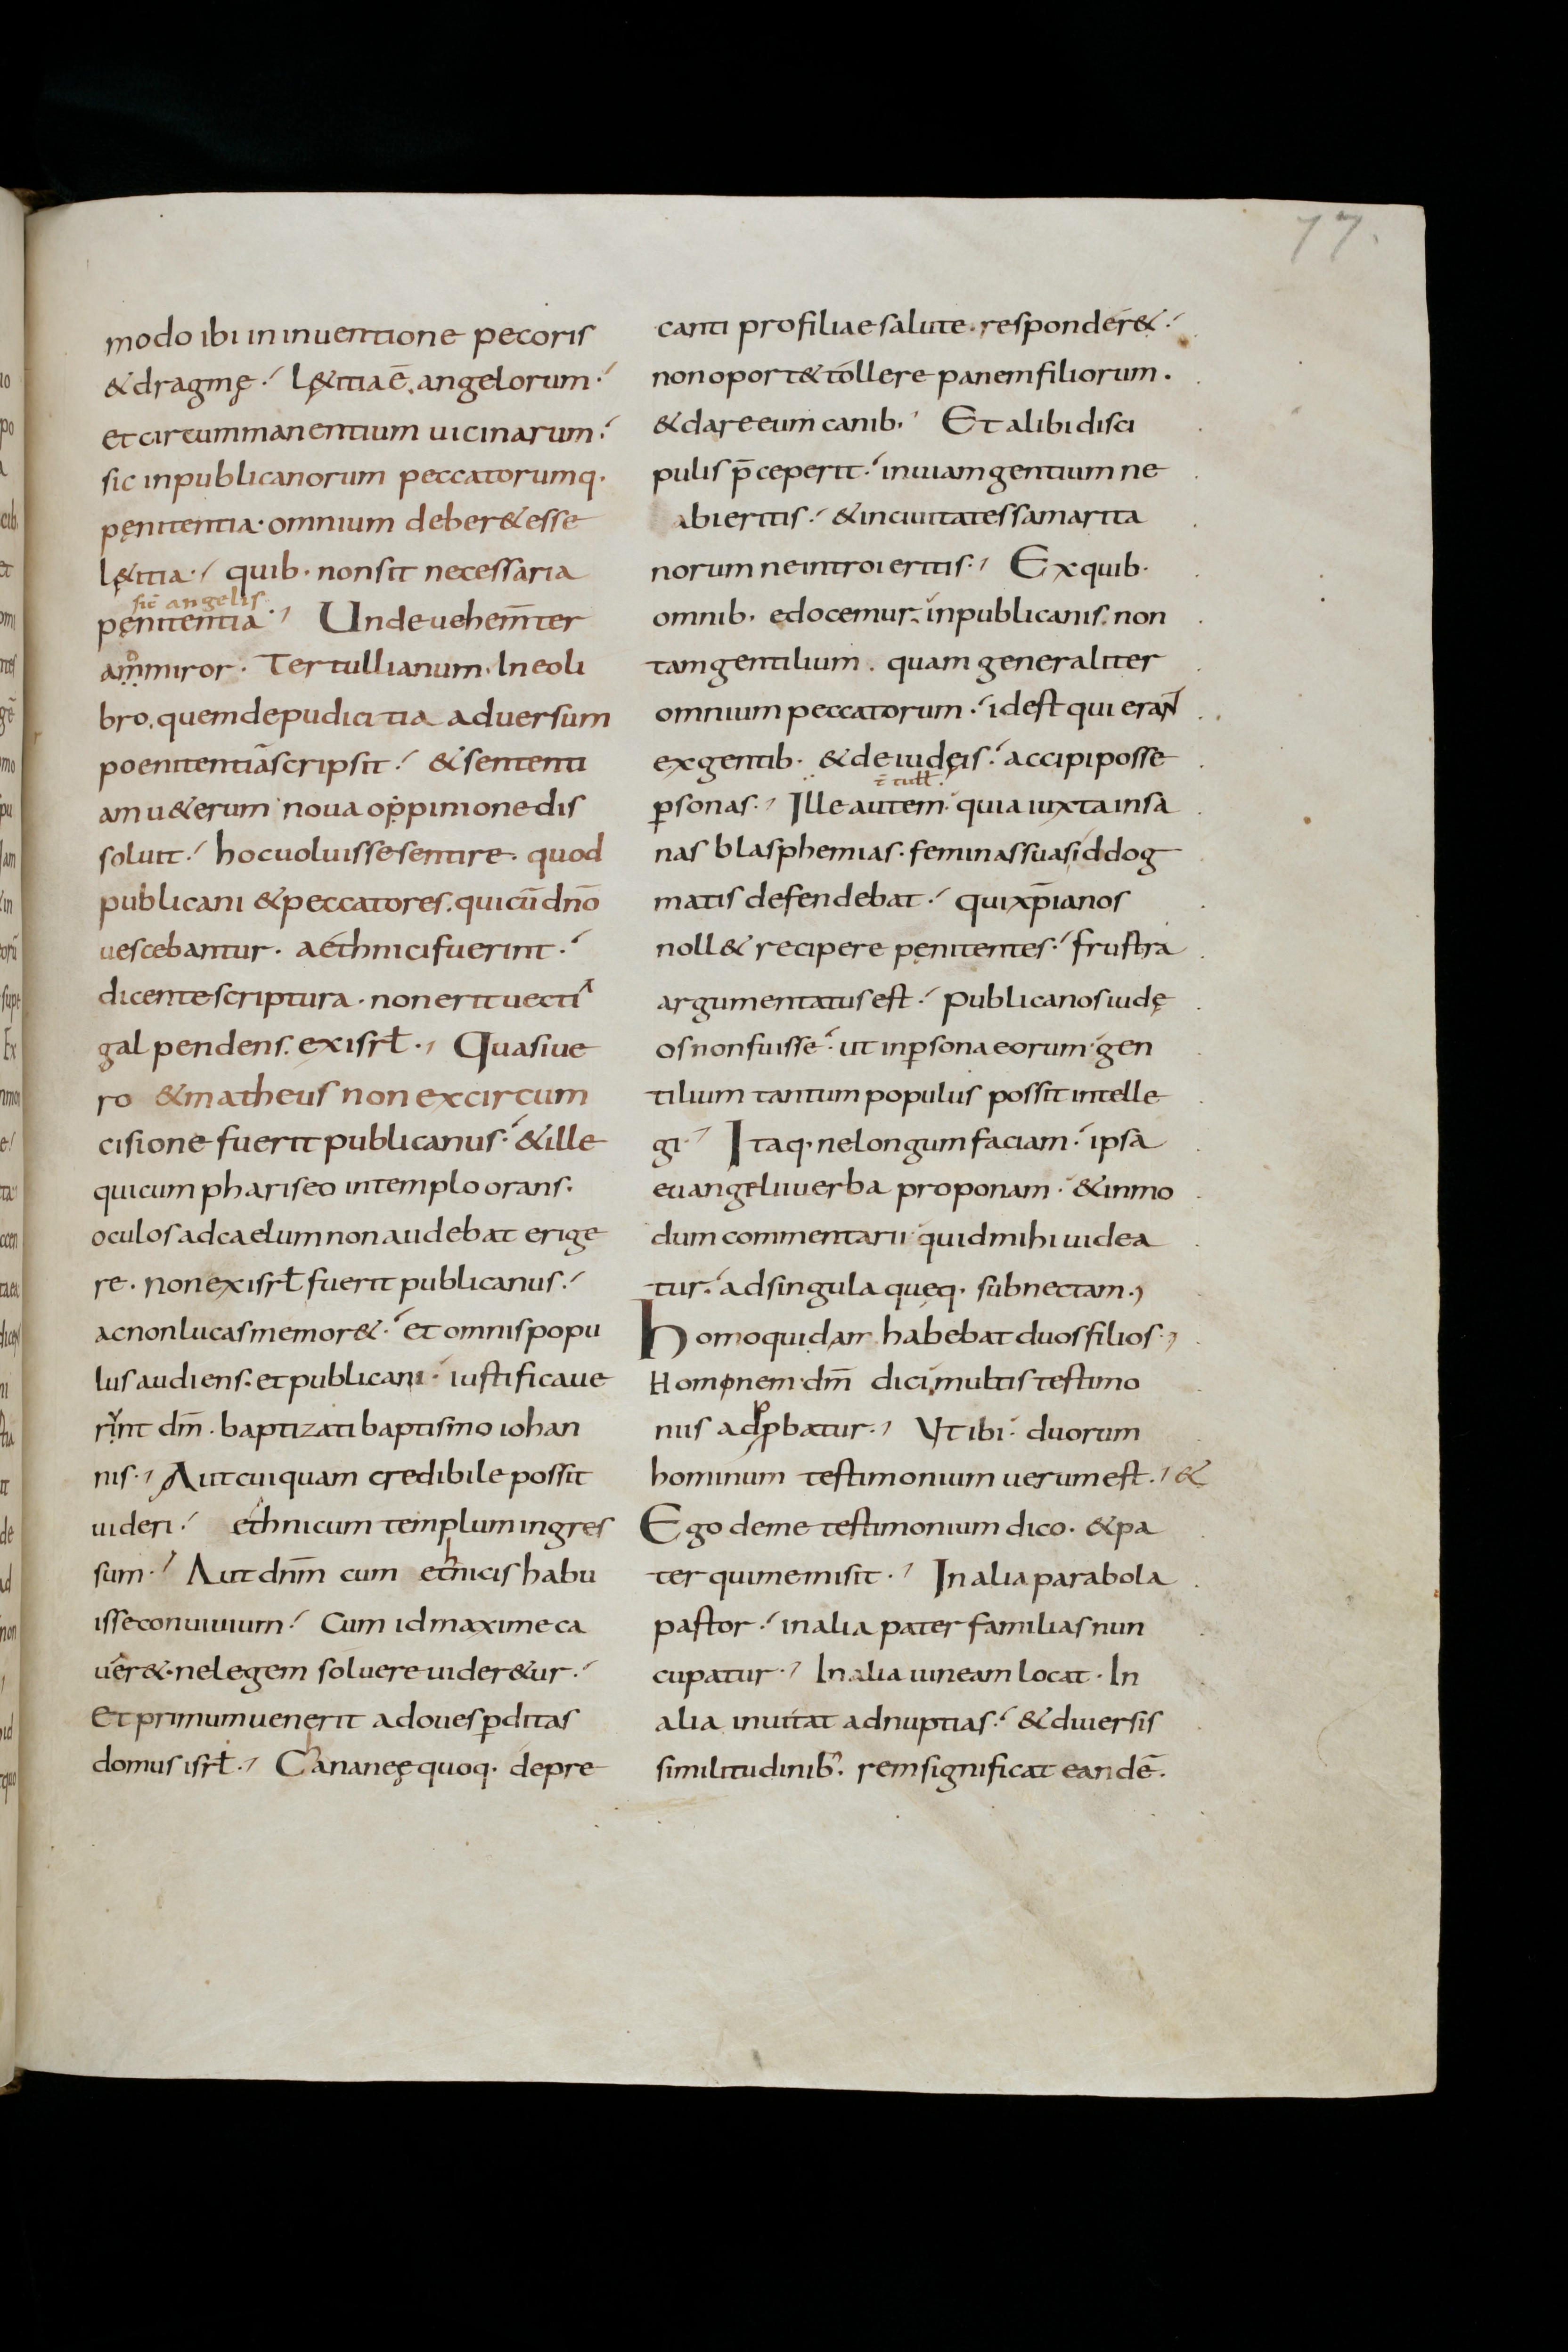 77.
modo ibi in inuentione pecoris
& dragmę. l&itia ē. angelorum.
et circummanentium uicinarum.
sic in publicanorum peccatorumq.
pęnitentia. omnium deber& esse
lę&itia. quib. non sit necessaria
sic̄ angelis
pęnitentia. Unde uehem̄ter
ammiror. Tertullianum. In eo li
bro, quem de pudicitia aduersum
poenitentiā scripsit. & sententi
am u&erum noua oppinione dis
soluit. hoc uoluisse sentire. quod
publicani & peccatores. qui cū dn̄o
uescebantur. aethnici fuerint.
dicente scriptura. non erit uecti
gal pendens. ex isrł. Quasi ue
ro & matheus non ex circum
cisione fuerit publicanus. & ille
qui cum phariseo in templo orans.
oculos ad caelum non audebat erige
re. non ex isrł fuerit publicanus.
ac non lucas memor&. et omnis popu
lus audiens. et publicani. iustificaue
rynt dm̄. baptizati baptismo iohan
nis. Aut cuiquam credibile possit
uideri. ethnicum templum ingres
sum. Aut dnm̄ cum ethnicis habu
isse conuiuium. Cum id maxime ca
uer&. ne legem soluere uider&ur.
Et primum uenerit ad oues ꝑditas
domus isrł. Chananeę quoq. depre
canti pro filiae salute. responder&.
non oport& tollere panem filiorum.
& dare eum canib. Et alibi disci
pulis p̄ceperit. in uiam gentium ne
abieritis. & in ciuitates samarita
norum ne introieritis. Ex quib.
omnib. edocemur. in publicanis. non
tam gentilium. quam generaliter
omnium peccatorum. id est qui erant
ex gentib. & de iudęis. accipi posse
.. t̄ tułł.
ꝑsonas. Ille autem. quia iuxta insa
nas blasphemias. feminas suas id dog
matis defendebat. qui xp̄ianos
noll& recipere pęnitentes. frustra
argumentatus est. publicanos iudę
os non fuisse. ut in ꝑsona eorum gen
tilium tantum populus possit intelle
gi. Itaq. ne longum faciam. ipsa
euangelii uerba proponam. & in mo
dum commentarii quid mihi uidea
tur. ad singula quęq. subnectam.
homo quidam habebat duos filios.
Hominem. dm̄ dici. multis testimo
niis adꝓbatur. Vt ibi. duorum
hominum testimonium uerum est. &
Ego de me testimonium dico. & pa
ter qui me misit. In alia parabola
pastor. in alia pater familias nun
cupatur. In alia uineam locat. In
alia inuitat ad nuptias. & diuersis
similitudinib. rem significat eandē.